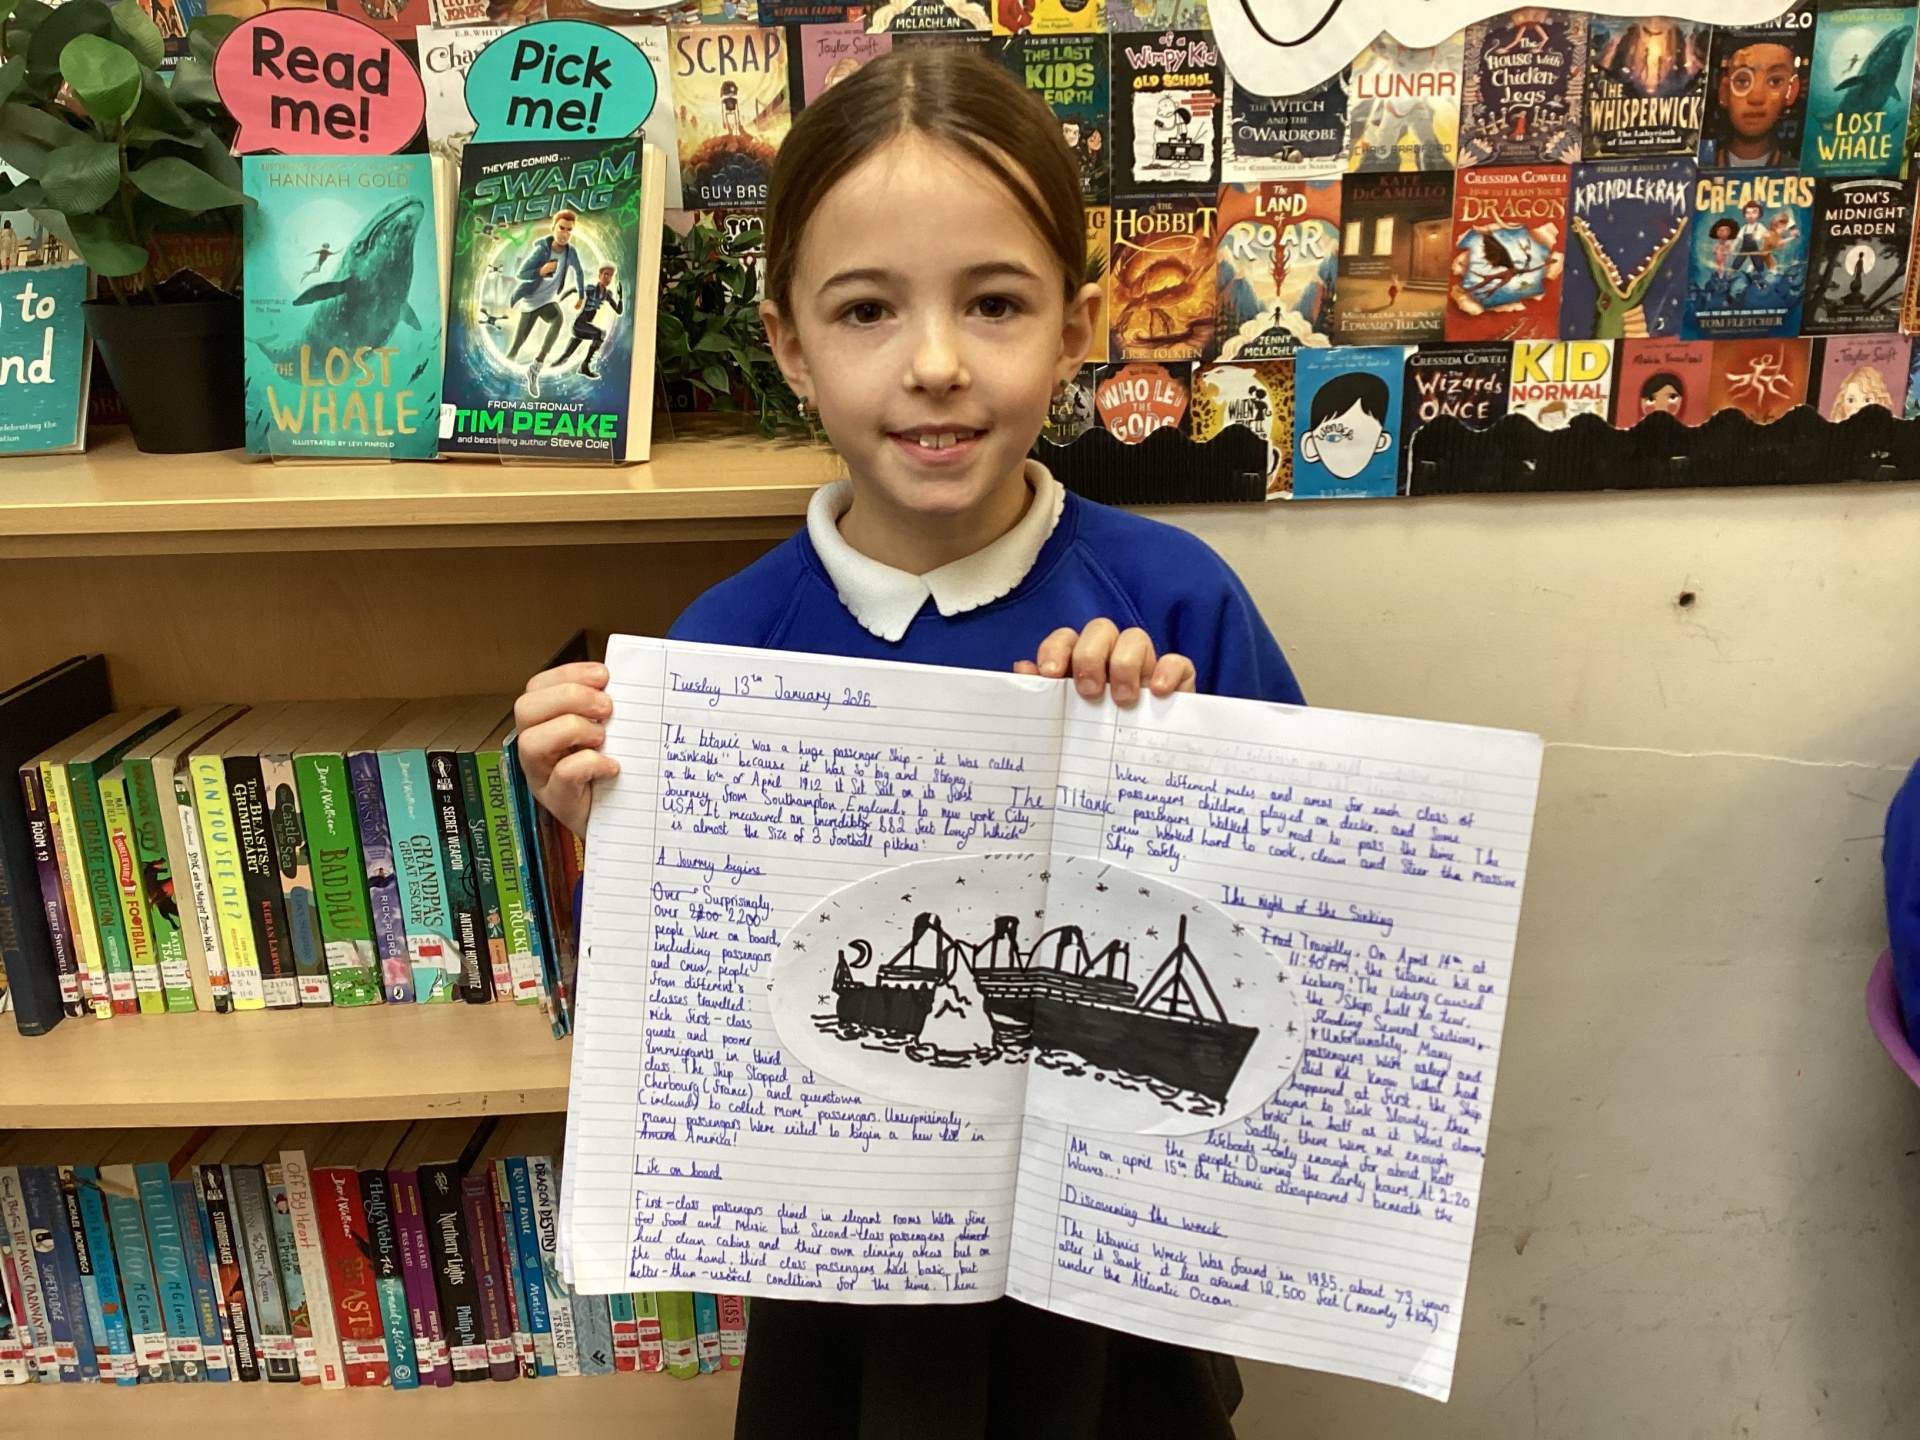 Read
me!
Pick
me!
HANNAH GOLD
THE
LOST
WHALE
ILLUSTRATED BY LEVI PINFOLD
THEY'RE COMING...
SWARM
RISING
FROM ASTRONAUT
TIM PEAKE
and bestselling author Steve Cole
E.B. WHITE
SCRAP
GUY BAS
Taylor Swift
JENNY
MCLACHLAN
THE LAST
KIDS
EARTH
of a
Wimpy Kid
OLD SCHOOL
THE WITCH
AND THE
WARDROBE
LUNAR
CHRIS BRADFORD
The
HOUSE with
Chicken
Legs
THE
WHISPERWICK
The Labyrinth
of Lost and Found
2.0
HANNAH GOLD
THE
LOST
WHALE
THE
HOBBIT
J.R.R. TOLKIEN
The
LAND
OF
ROAR
JENNY
MCLACHLAN
KATE
DICAMILLO
EDWARD TULANE
CRESSIDA COWELL
HOW TO TRAIN YOUR
DRAGON
PHILIP RIDLEY
KRINDLEKRAX
The
CREAKERS
TOM FLETCHER
TOM'S
MIDNIGHT
GARDEN
PHILIPPA PEARCE
WHO LET
THE
GODS
Wonder
CRESSIDA COWELL
The
Wizards
of
ONCE
KID
NORMAL
Taylor Swift
to
nd
Tuesday 13th January 2026
The Titanic
The titanic was a huge passenger ship - it was called
"unsinkable" because it was so big and strong.
on the 10th of April 1912 it set sail on its first
journey from Southampton, England, to new york City,
USA. It measured an incredible 882 feet long which
is almost the size of 3 football pitches!
A Journey begins
Over Surprisingly,
over 2200 2,200
people were on board,
including passengers
and crew, people
from different
classes travelled:
rich first-class
guests and poorer
immigrants in third
class. The ship stopped at
Cherbourg (france) and queenstown
(ireland) to collect more passengers. Unsurprisingly,
many passengers were exited to begin a new life in
America!
Life on board
First-class passengers dined in elegant rooms with fine
food and music but Second-class passengers
had clean cabins and their own dining areas but on
the othe hand, third class passengers had basic, but
better-than-usual conditions for the time. There
Were different rules and areas for each class of
passengers children played on decks, and some
passengers walked or read to pass the time. The
crew worked hard to cook, clean and steer the massive
ship safely.
The night of the Sinking
Tragically, On April 14th at
11:40 PM, the titanic hit an
iceberg! The iceberg caused
the ships hull to tear,
flooding several sections.
Unfortunately, Many
passengers were asleep and
did not know what had
happened at first, the ship
began to sink slowly, then
broke in half as it went down
Sadly, there were not enough
lifeboats - only enough for about half
the people! During the early hours, At 2:20
AM on april 15th, the titanic dissapeared beneath the
waves...
Discovering the wreck
The titanics wreck was found in 1985, about 73 years
after it sank, it lies around 12,500 feet (nearly 4km)
under the Atlantic Ocean.
ROOM 13
DRAKE EQUATION
FOOTBALL
CAN YOU SEE ME?
THE BEASTS OF
GRIMHEART
KIERAN LARWOOD
The Castle
of the Sea
David Walliams
BAD DAD
RICK RIORDAN
David Walliams
GRANDPA'S
GREAT ESCAPE
SECRET WEAPON
ANTHONY HOROWITZ
TERRY PRATCHETT
TRUCKE
MICHAEL MORPURGO
STORMBREAKER
ANTHONY HOROWITZ
Off By Heart
David Walliams
BEAST
Holly Webb
Northern Lights
ROALD DAHL
Matilda
DRAGON DESTINY
TSANG